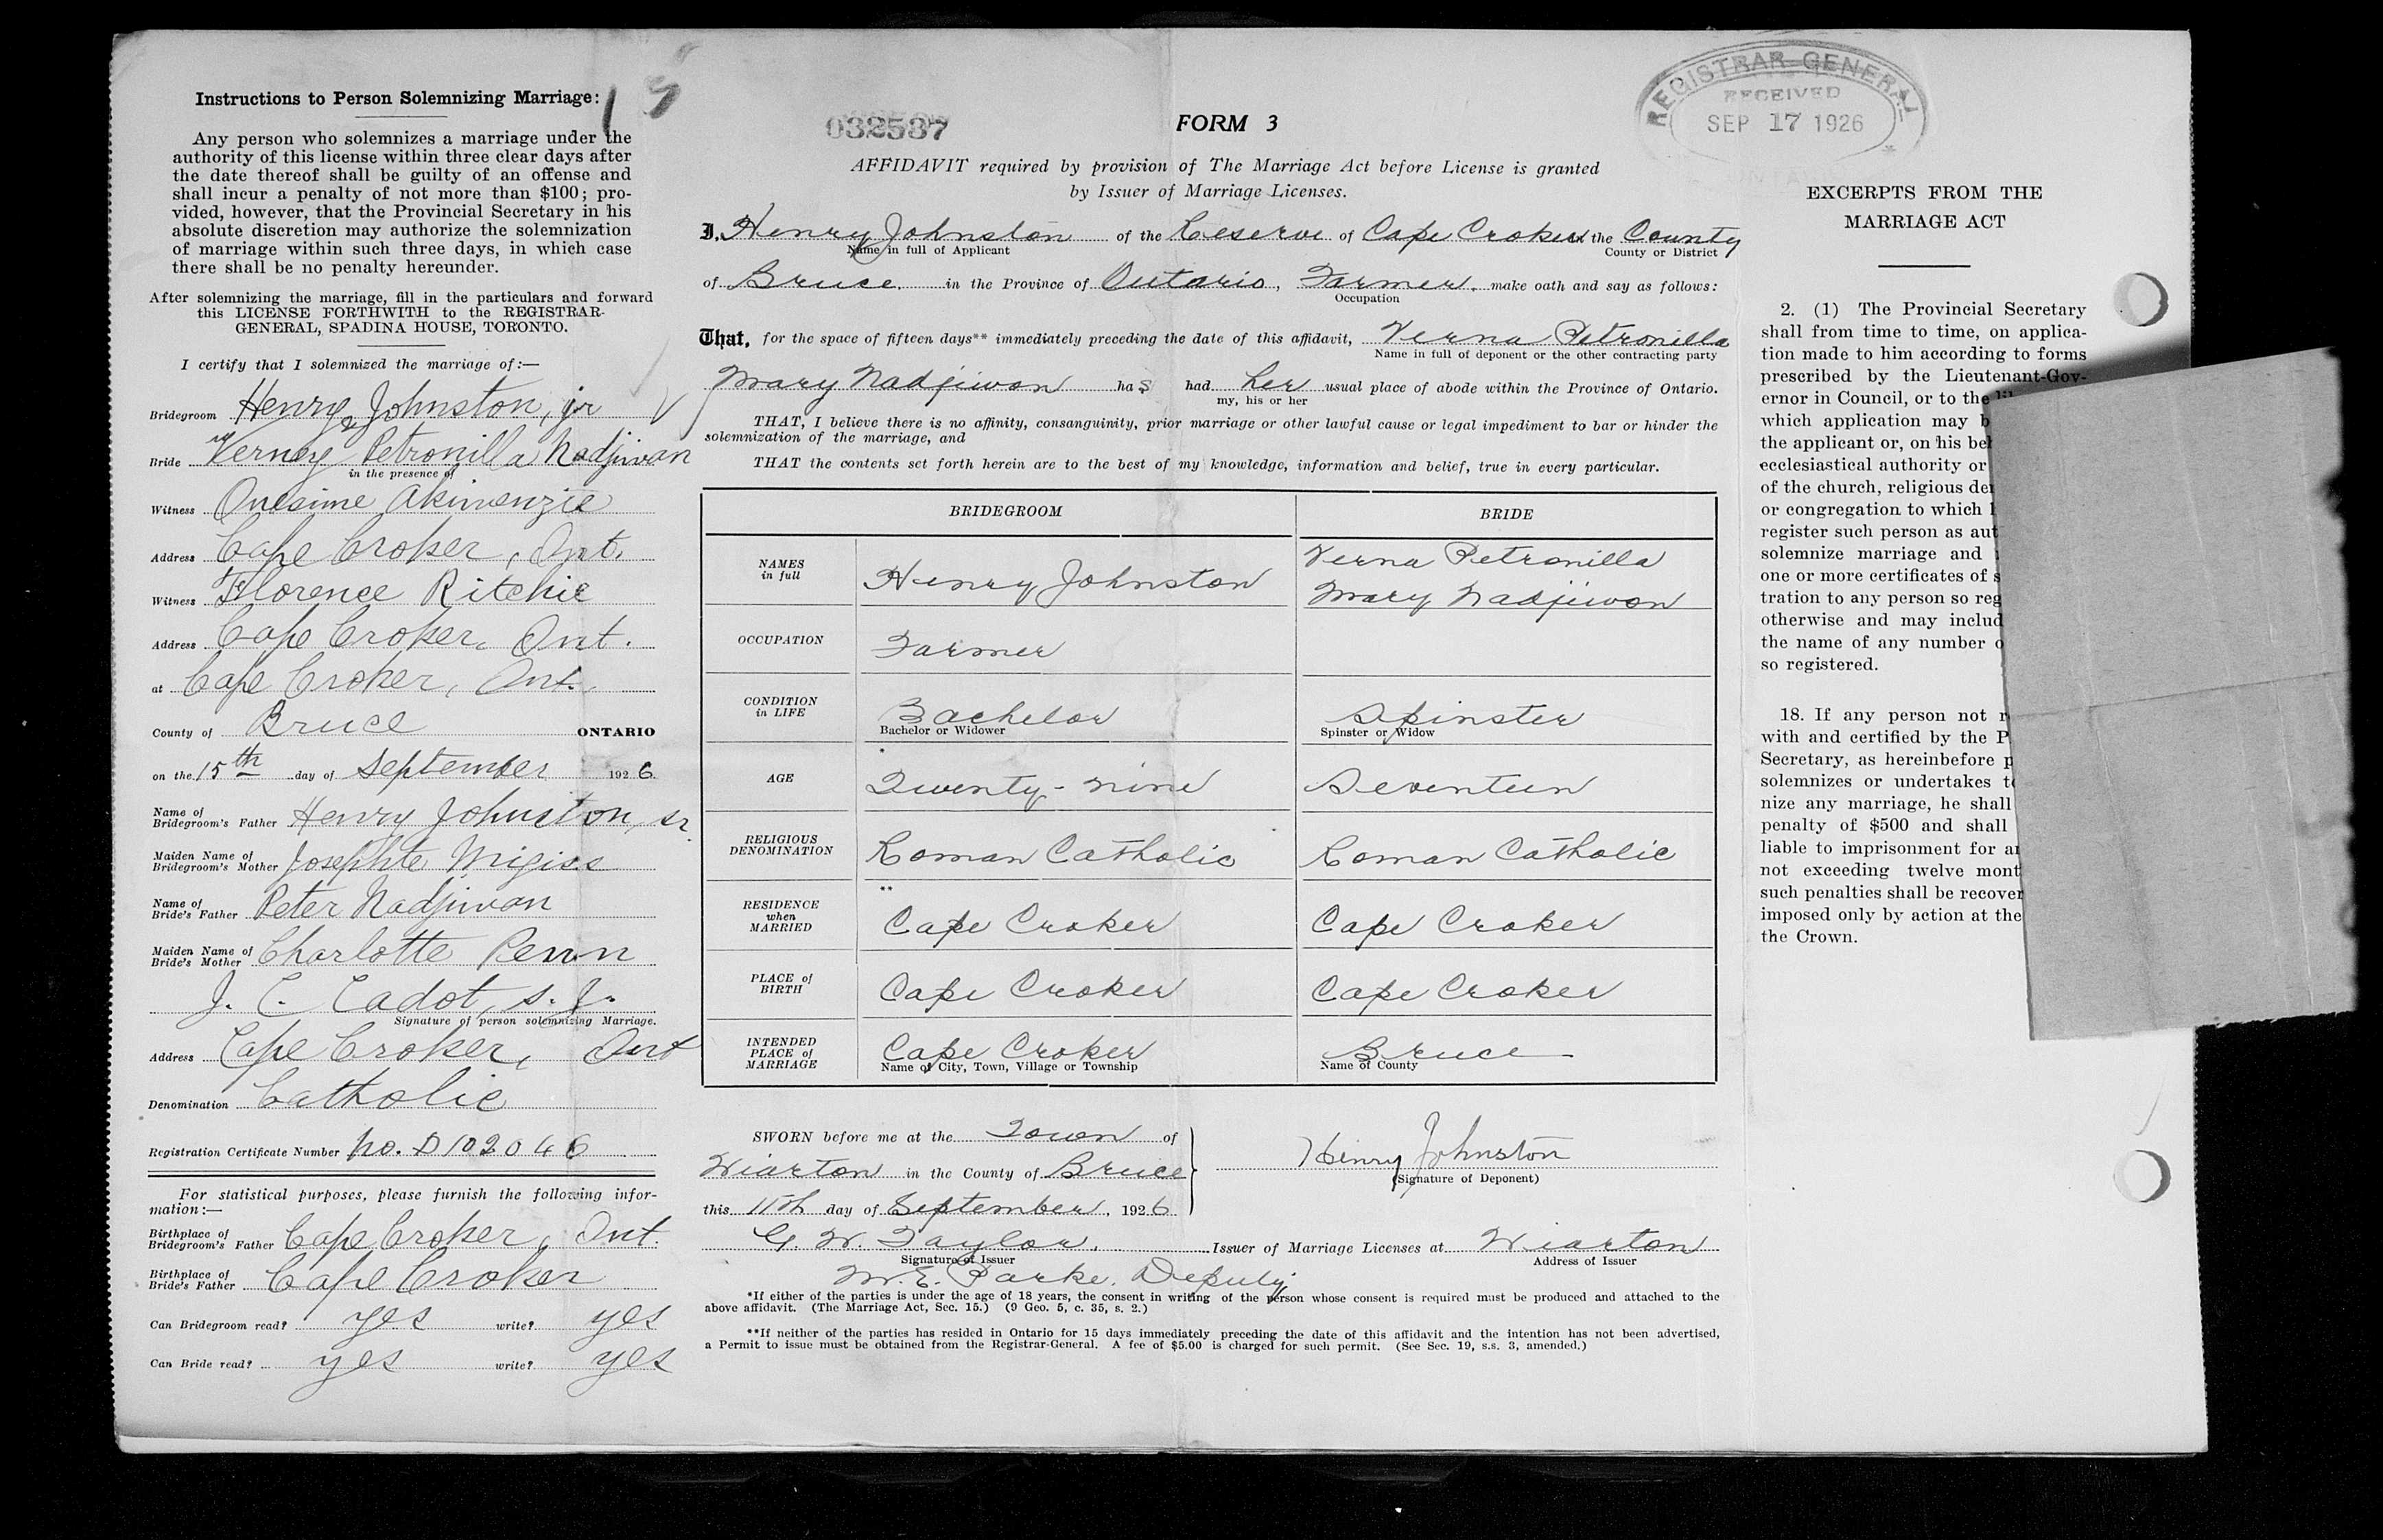 Instructions to Person Solemnizing Marriage:
15
Any person who solemnizes a marriage under the
authority of this license within three clear days after
the date thereof shall be guilty of an offense and
shall incur a penalty of not more than $100; pro-
vided, however, that the Provincial Secretary in his
absolute discretion may authorize the solemnization
of marriage within such three days, in which case
there shall be no penalty hereunder.
After solemnizing the marriage, fill in the particulars and forward
this LICENSE FORTHWITH to the REGISTRAR-
GENERAL, SPADINA HOUSE, TORONTO.
I certify that I solemnized the marriage of:—
Bridegroom Henry Johnston, jr
Bride Petronilla Nadjiwan
in the presence of
Witness Onesime Akiwenzie
Address Cape Croker, Ont.
Witness Florence Ritchie
Address Cape Croker, Ont.
at Cape Croker, Ont.
County of Bruce ONTARIO
on the 15th day of September 1926
Name of
Bridegroom's Father Henry Johnston, sr.
Maiden Name of
Bridegroom's Mother Josephte Migiss
Name of
Bride's Father Peter Nadjiwan
Maiden Name of
Bride's Mother Charlotte Penn
J. C. Cadot, s.j.
Signature of person solemnizing Marriage.
Address Cape Croker, Ont
Denomination Catholic
Registration Certificate Number No. D102046
For statistical purposes, please furnish the following infor-
mation:—
Birthplace of
Bridegroom's Father Cape Croker, Ont.
Birthplace of
Bride's Father Cape Croker
Can Bridegroom read? yes write? yes
Can Bride read? yes write? yes
032537
FORM 3
AFFIDAVIT required by provision of The Marriage Act before License is granted
by Issuer of Marriage Licenses.
I, Henry Johnston of the Reserve of Cape Croker the County
Name in full of Applicant County or District
of Bruce. in the Province of Ontario, Farmer. make oath and say as follows:
Occupation
That, for the space of fifteen days** immediately preceding the date of this affidavit, Verna Petronilla
Name in full of deponent or the other contracting party
Mary Nadjiwon has had her usual place of abode within the Province of Ontario.
my, his or her
THAT, I believe there is no affinity, consanguinity, prior marriage or other lawful cause or legal impediment to bar or hinder the
solemnization of the marriage, and
THAT the contents set forth herein are to the best of my knowledge, information and belief, true in every particular.
BRIDEGROOM BRIDE
NAMES
in full
Henry Johnston
Verna Petronilla
Mary Nadjiwon
OCCUPATION Farmer
CONDITION
in LIFE
Bachelor Spinster
Bachelor or Widower Spinster or Widow
*
AGE Twenty-nine Seventeen
RELIGIOUS
DENOMINATION
Roman Catholic Roman Catholic
**
RESIDENCE
when
MARRIED
Cape Croker Cape Croker
PLACE of
BIRTH
Cape Croker Cape Croker
INTENDED
PLACE of
MARRIAGE
Cape Croker Bruce
Name of City, Town, Village or Township Name of County
SWORN before me at the Town of
Wiarton in the County of Bruce
this 11th day of September, 1926
Henry Johnston
(Signature of Deponent)
G. W. Taylor. Issuer of Marriage Licenses at Wiarton
Signature of Issuer Address of Issuer
M. E. Parke. Deputy
*If either of the parties is under the age of 18 years, the consent in writing of the person whose consent is required must be produced and attached to the
above affidavit. (The Marriage Act, Sec. 15.) (9 Geo. 5, c. 35, s. 2.)
**If neither of the parties has resided in Ontario for 15 days immediately preceding the date of this affidavit and the intention has not been advertised,
a Permit to issue must be obtained from the Registrar-General. A fee of $5.00 is charged for such permit. (See Sec. 19, s.s. 3, amended.)
REGISTRAR GENERAL
RECEIVED
SEP 17 1926
EXCERPTS FROM THE
MARRIAGE ACT
2. (1) The Provincial Secretary
shall from time to time, on applica-
tion made to him according to forms
prescribed by the Lieutenant-Gov-
ernor in Council, or to the
which application may
the applicant or, on his
ecclesiastical authority or
of the church, religious
or congregation to which
register such person as
solemnize marriage and
one or more certificates of
tration to any person so
otherwise and may
the name of any number
so registered.
18. If any person not
with and certified by the
Secretary, as hereinbefore
solemnizes or undertakes
nize any marriage, he shall
penalty of $500 and shall
liable to imprisonment for
not exceeding twelve
such penalties shall be
imposed only by action at the
the Crown.